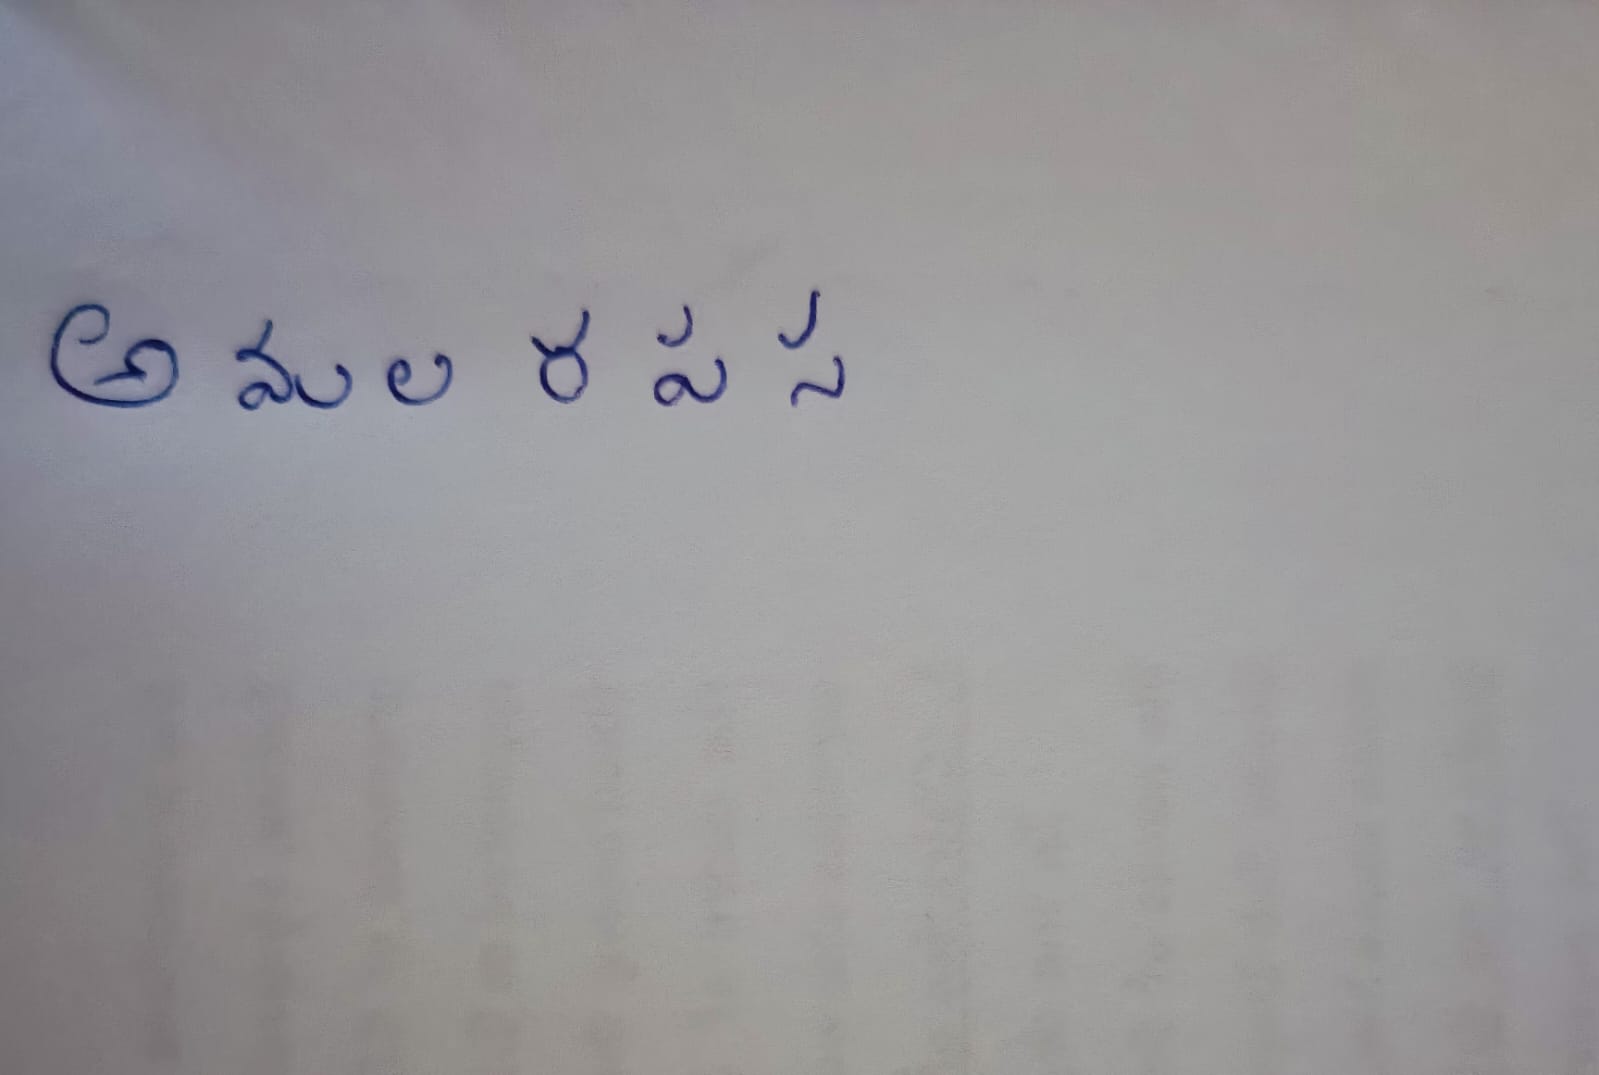 అ మ ల ర ప స